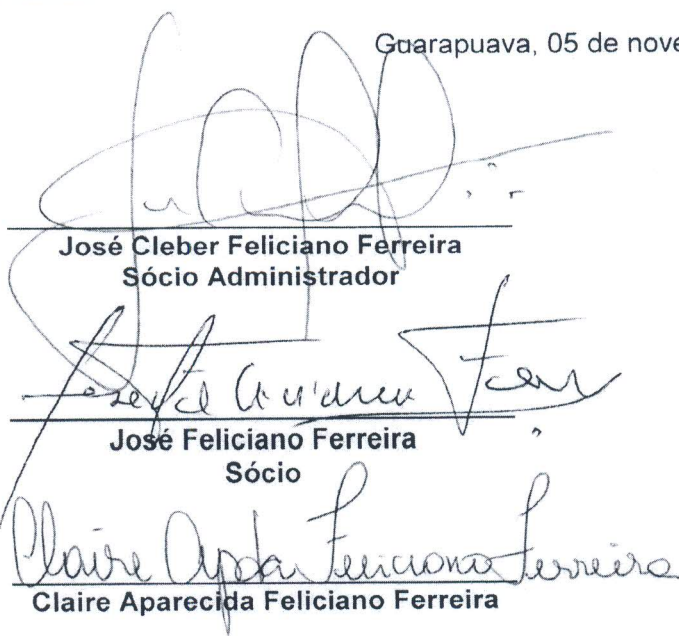 Guarapuava, 05 de nove
José Cleber Feliciano Ferreira
Sócio Administrador
José Feliciano Ferreira
Sócio
Claire Apda Feliciano Ferreira
Claire Aparecida Feliciano Ferreira